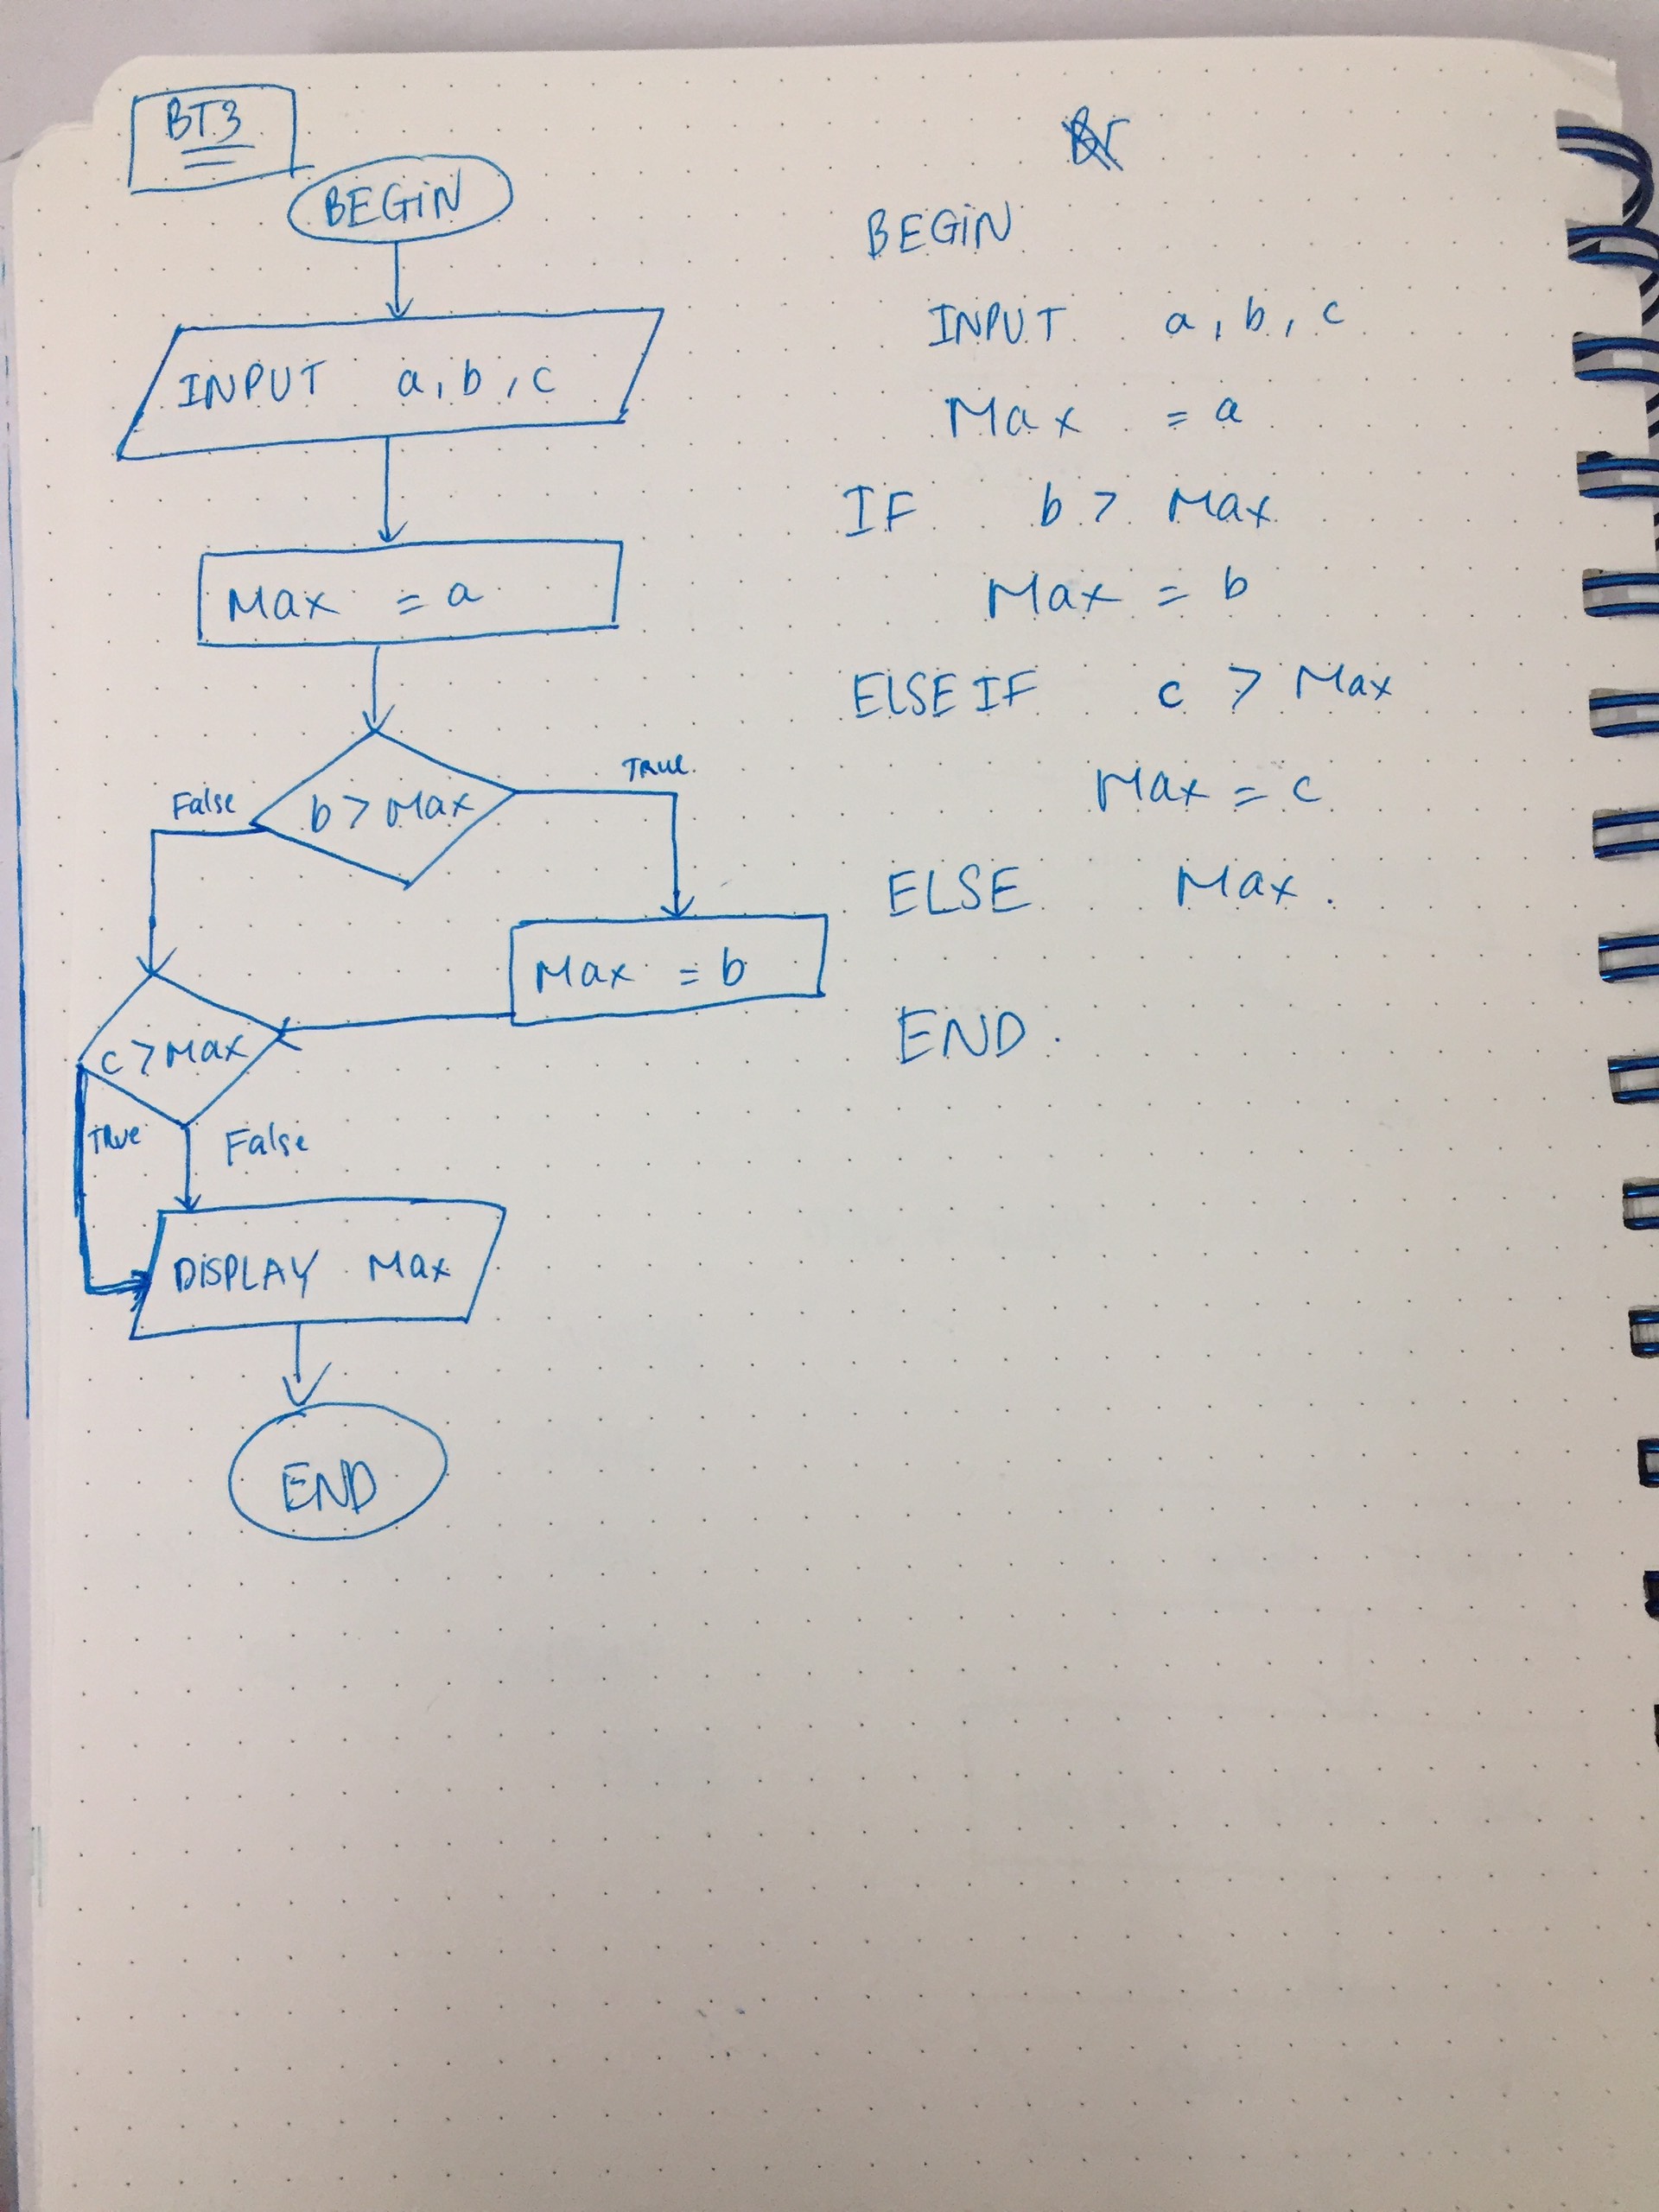 BT3
BEGIN
INPUT a, b, c
Max = a
b > Max
False
True
Max = b
c > Max
True
False
DISPLAY Max
END
BEGIN
INPUT a, b, c
Max = a
IF b > Max
Max = b
ELSE IF c > Max
Max = c
ELSE Max.
END.